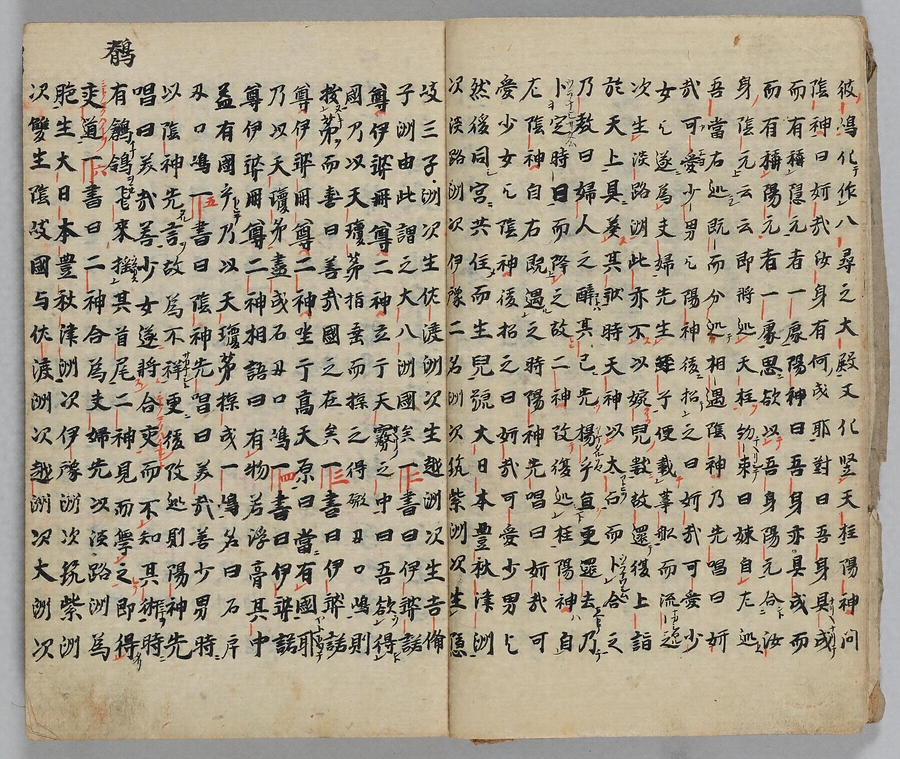 彼鴻化作八尋之大殿又化竪天柱陽神問
陰神曰妍哉汝身有何成耶對曰吾身具成
而有稱陰元者一處陽神曰吾身亦具成而
而有稱陽元者一處思欲以吾身陽元合汝
身陰元云云即將巡天柱約束曰妹自左巡
吾當右巡既而分巡相遇陰神乃先唱曰妍
哉可愛少男乀陽神後招之曰妍哉可愛少
女乀遂為夫婦先生蛭子便載葦船而流之
次生淡路洲此亦不以宛兒數故還復上詣
於天上具奏其狀時天神以太占而卜合之
乃教曰婦人之辭其已先揚乎宜更還去乃
卜定時日而降之故二神改復巡柱陽神自
左陰神自右既遇之時陽神先唱曰妍哉可
愛少女乀陰神後招之曰妍哉可愛少男乀
然後同宮共住而生兒號大日本豊秋津洲
次淡路洲次伊豫二名洲次筑紫洲次生隱
岐三子洲次生佐渡洲次生越洲次生吉備
子洲由此謂之大八洲國矣一書曰伊弉諾
尊伊弉冊尊二神立于天霧之中曰吾欲得
國乃以天瓊矛指垂而探之得磤丑口嶋則
拔矛而喜曰善哉國之在矣三一書曰伊弉諾
尊伊弉冊尊二神坐于高天原曰當有國耶
乃以天瓊矛畫成石丑口嶋四一書曰伊弉諾
尊伊弉冊尊二神相語曰有物若浮膏其中
益有國乎乃以天瓊矛探成一嶋名曰石
丑口嶋五一書曰陰神先唱曰美哉善少男時
以陰神先言故為不祥更復改巡則陽神先
唱曰美哉善少女遂將合交而不知其術時
鶺
有鶺鴒飛來搖其首尾二神見而學之即得
交道六一書曰二神合為夫婦先以淡路洲為
胞生大日本豊秋津洲次伊豫洲次筑紫洲
次雙生隱岐國与佐渡洲次越洲次大洲次